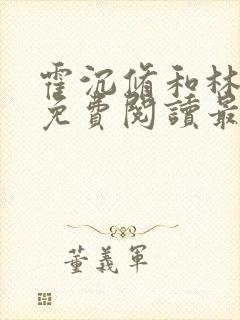 霍沉脩和林
免費閱讀最
董義軍